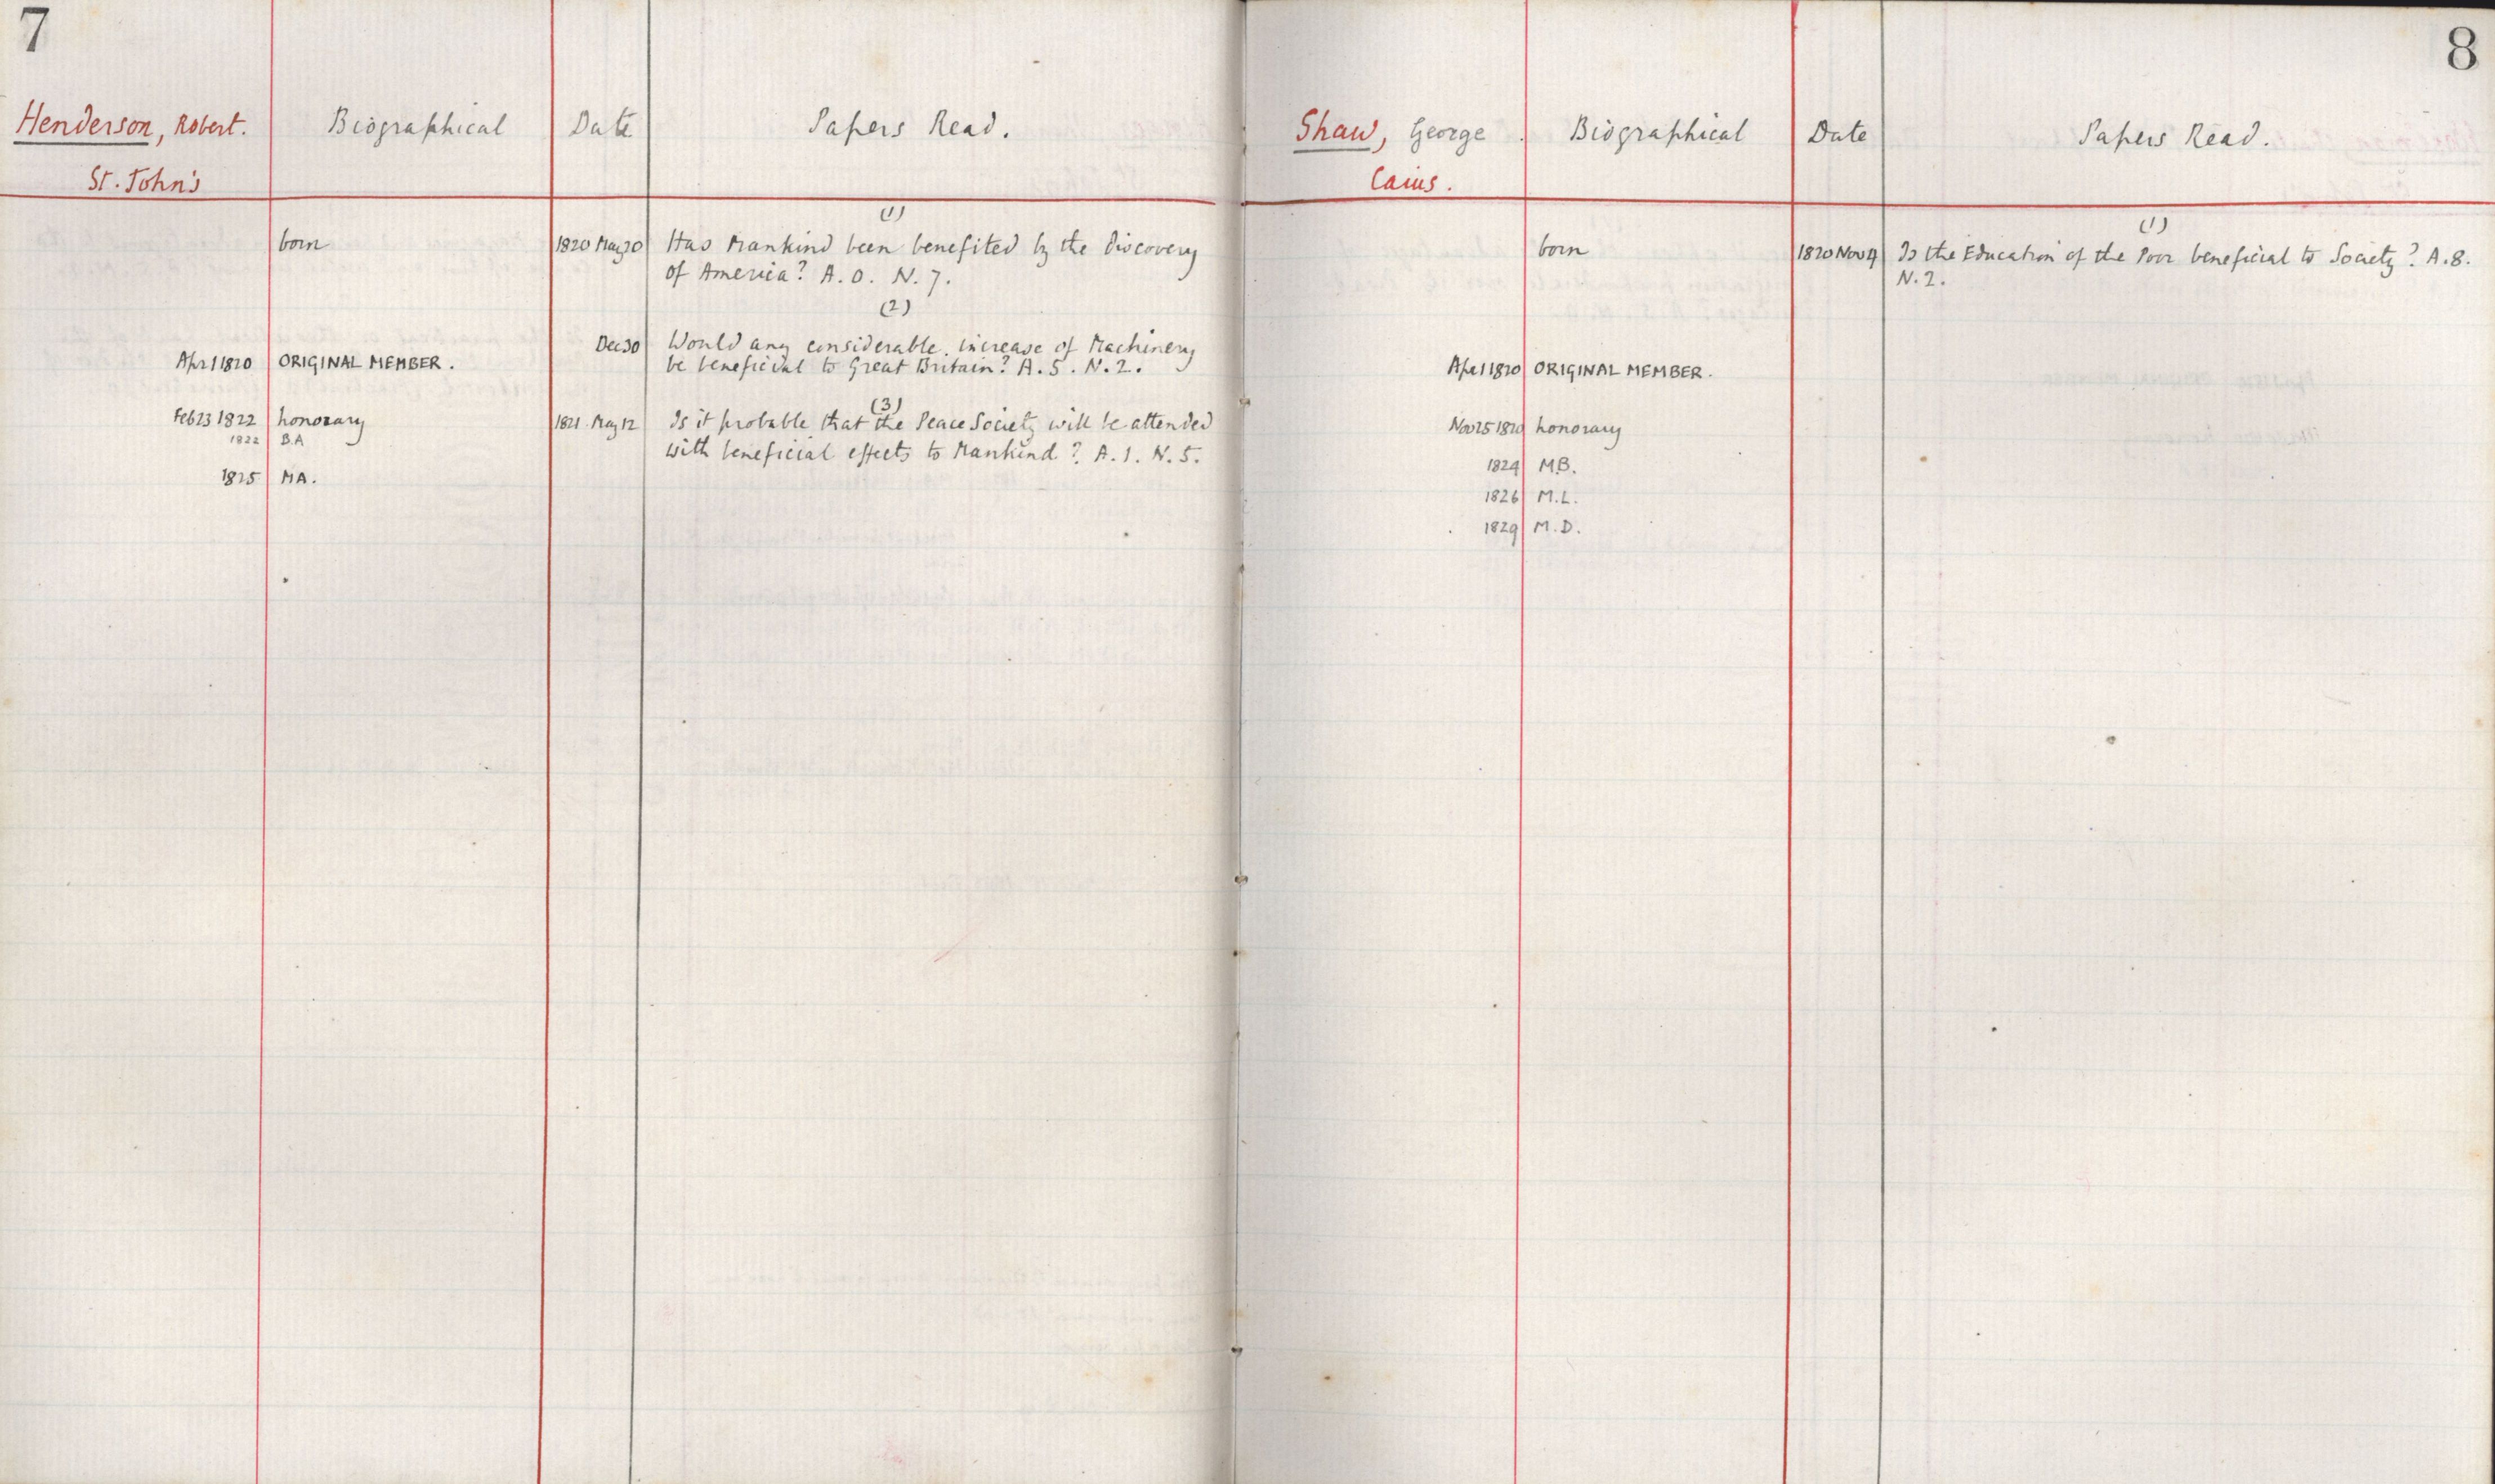 7
Henderson, Robert.
St. John's
Biographical
Date
Papers Read.
born
Apr 1 1820 ORIGINAL MEMBER.
Feb 23 1822 honorary
1822 B.A
1825 MA.
(1)
1820 May 20 Has Mankind been benefited by the discovery
of America? A. 0. N. 7.
(2)
Dec 30 Would any considerable increase of Machinery
be beneficial to Great Britain? A. 5. N. 2.
(3)
1821 May 12 Is it probable that the Peace Society will be attended
with beneficial effects to Mankind? A. 1. N. 5.
8
Shaw, George
Caius.
Biographical
Date
Papers Read.
born
Apr 1 1820 ORIGINAL MEMBER.
Nov 25 1820 honorary
1824 M.B.
1826 M.L.
1829 M.D.
(1)
1820 Nov 4 Is the Education of the Poor beneficial to Society? A. 8.
N. 2.